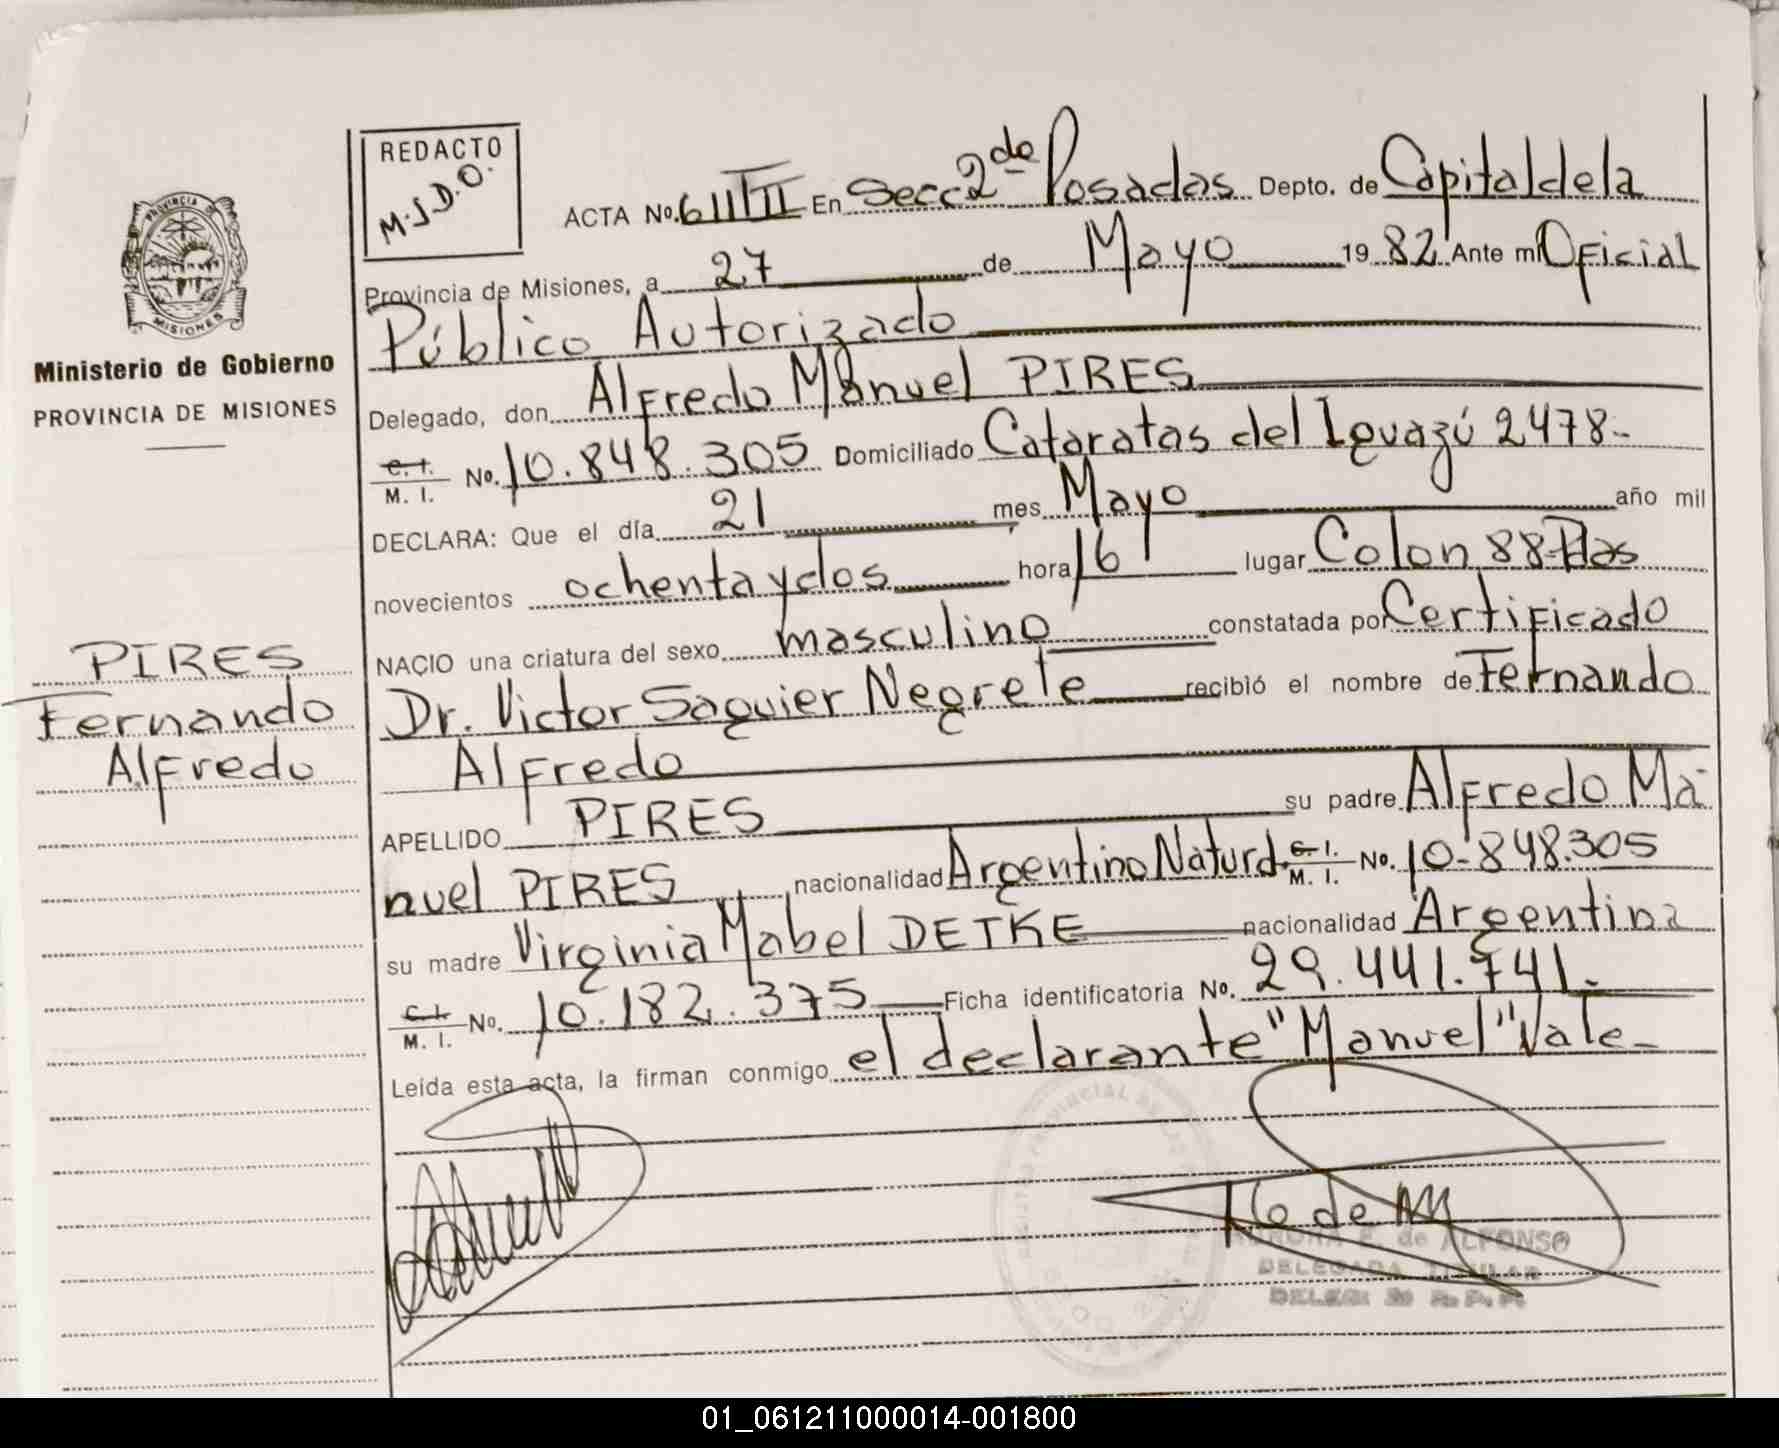 REDACTO
M.J.D.O.
ACTA No. 611 TII En Secc 2da Posadas Depto. de Capital de la
Provincia de Misiones, a 27 de Mayo 1982 Ante mi Oficial
Público Autorizado
Delegado, don Alfredo Manuel PIRES
C. I. / M. I. No. 10.848.305 Domiciliado Cataratas del Iguazú 2478-
DECLARA: Que el día 21 mes Mayo año mil
novecientos ochenta y dos hora 16 lugar Colon 88 Pdas
NACIO una criatura del sexo masculino constatada por Certificado
Dr. Victor Saguier Negrete recibió el nombre de Fernando
Alfredo
APELLIDO PIRES su padre Alfredo Ma
nuel PIRES nacionalidad Argentino Natural C. I. / M. I. No. 10.848.305
su madre Virginia Mabel DETKE nacionalidad Argentina
C. I. / M. I. No. 10.182.375 Ficha identificatoria No. 29.441.741.-
Leida esta acta, la firman conmigo el declarante "Manuel" Vale-
PROVINCIA DE
MISIONES
Ministerio de Gobierno
PROVINCIA DE MISIONES
PIRES
Fernando
Alfredo
AURORA E. de ALFONSO
DELEGADA TITULAR
01_061211000014-001800